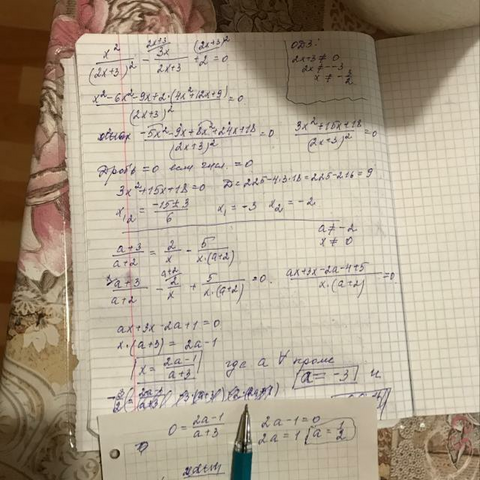 x²/(2x+3)² - 3x/(2x+3) + 2 = 0
2x+3 (2x+3)²
ОДЗ:
2x+3 ≠ 0
2x ≠ -3
x ≠ -3/2
(x² - 6x² - 9x + 2·(4x² + 12x + 9))/(2x+3)² = 0
(-5x² - 9x + 8x² + 24x + 18)/(2x+3)² = 0 (3x² + 15x + 18)/(2x+3)² = 0
Дробь = 0 если числ. = 0
3x² + 15x + 18 = 0 D = 225 - 4·3·18 = 225 - 216 = 9
x₁,₂ = (-15 ± 3)/6 x₁ = -3 x₂ = -2
a ≠ -2
x ≠ 0
(a+3)/(a+2) = 2/x - 5/(x·(a+2))
(a+3)/(a+2) - 2/x + 5/(x·(a+2)) = 0. (ax + 3x - 2a - 4 + 5)/(x·(a+2)) = 0
ax + 3x - 2a + 1 = 0
x·(a+3) = 2a - 1
x = (2a-1)/(a+3) где a ∀ кроме a = -3 и
0 = (2a-1)/(a+3) 2a - 1 = 0
2a = 1 a = 1/2